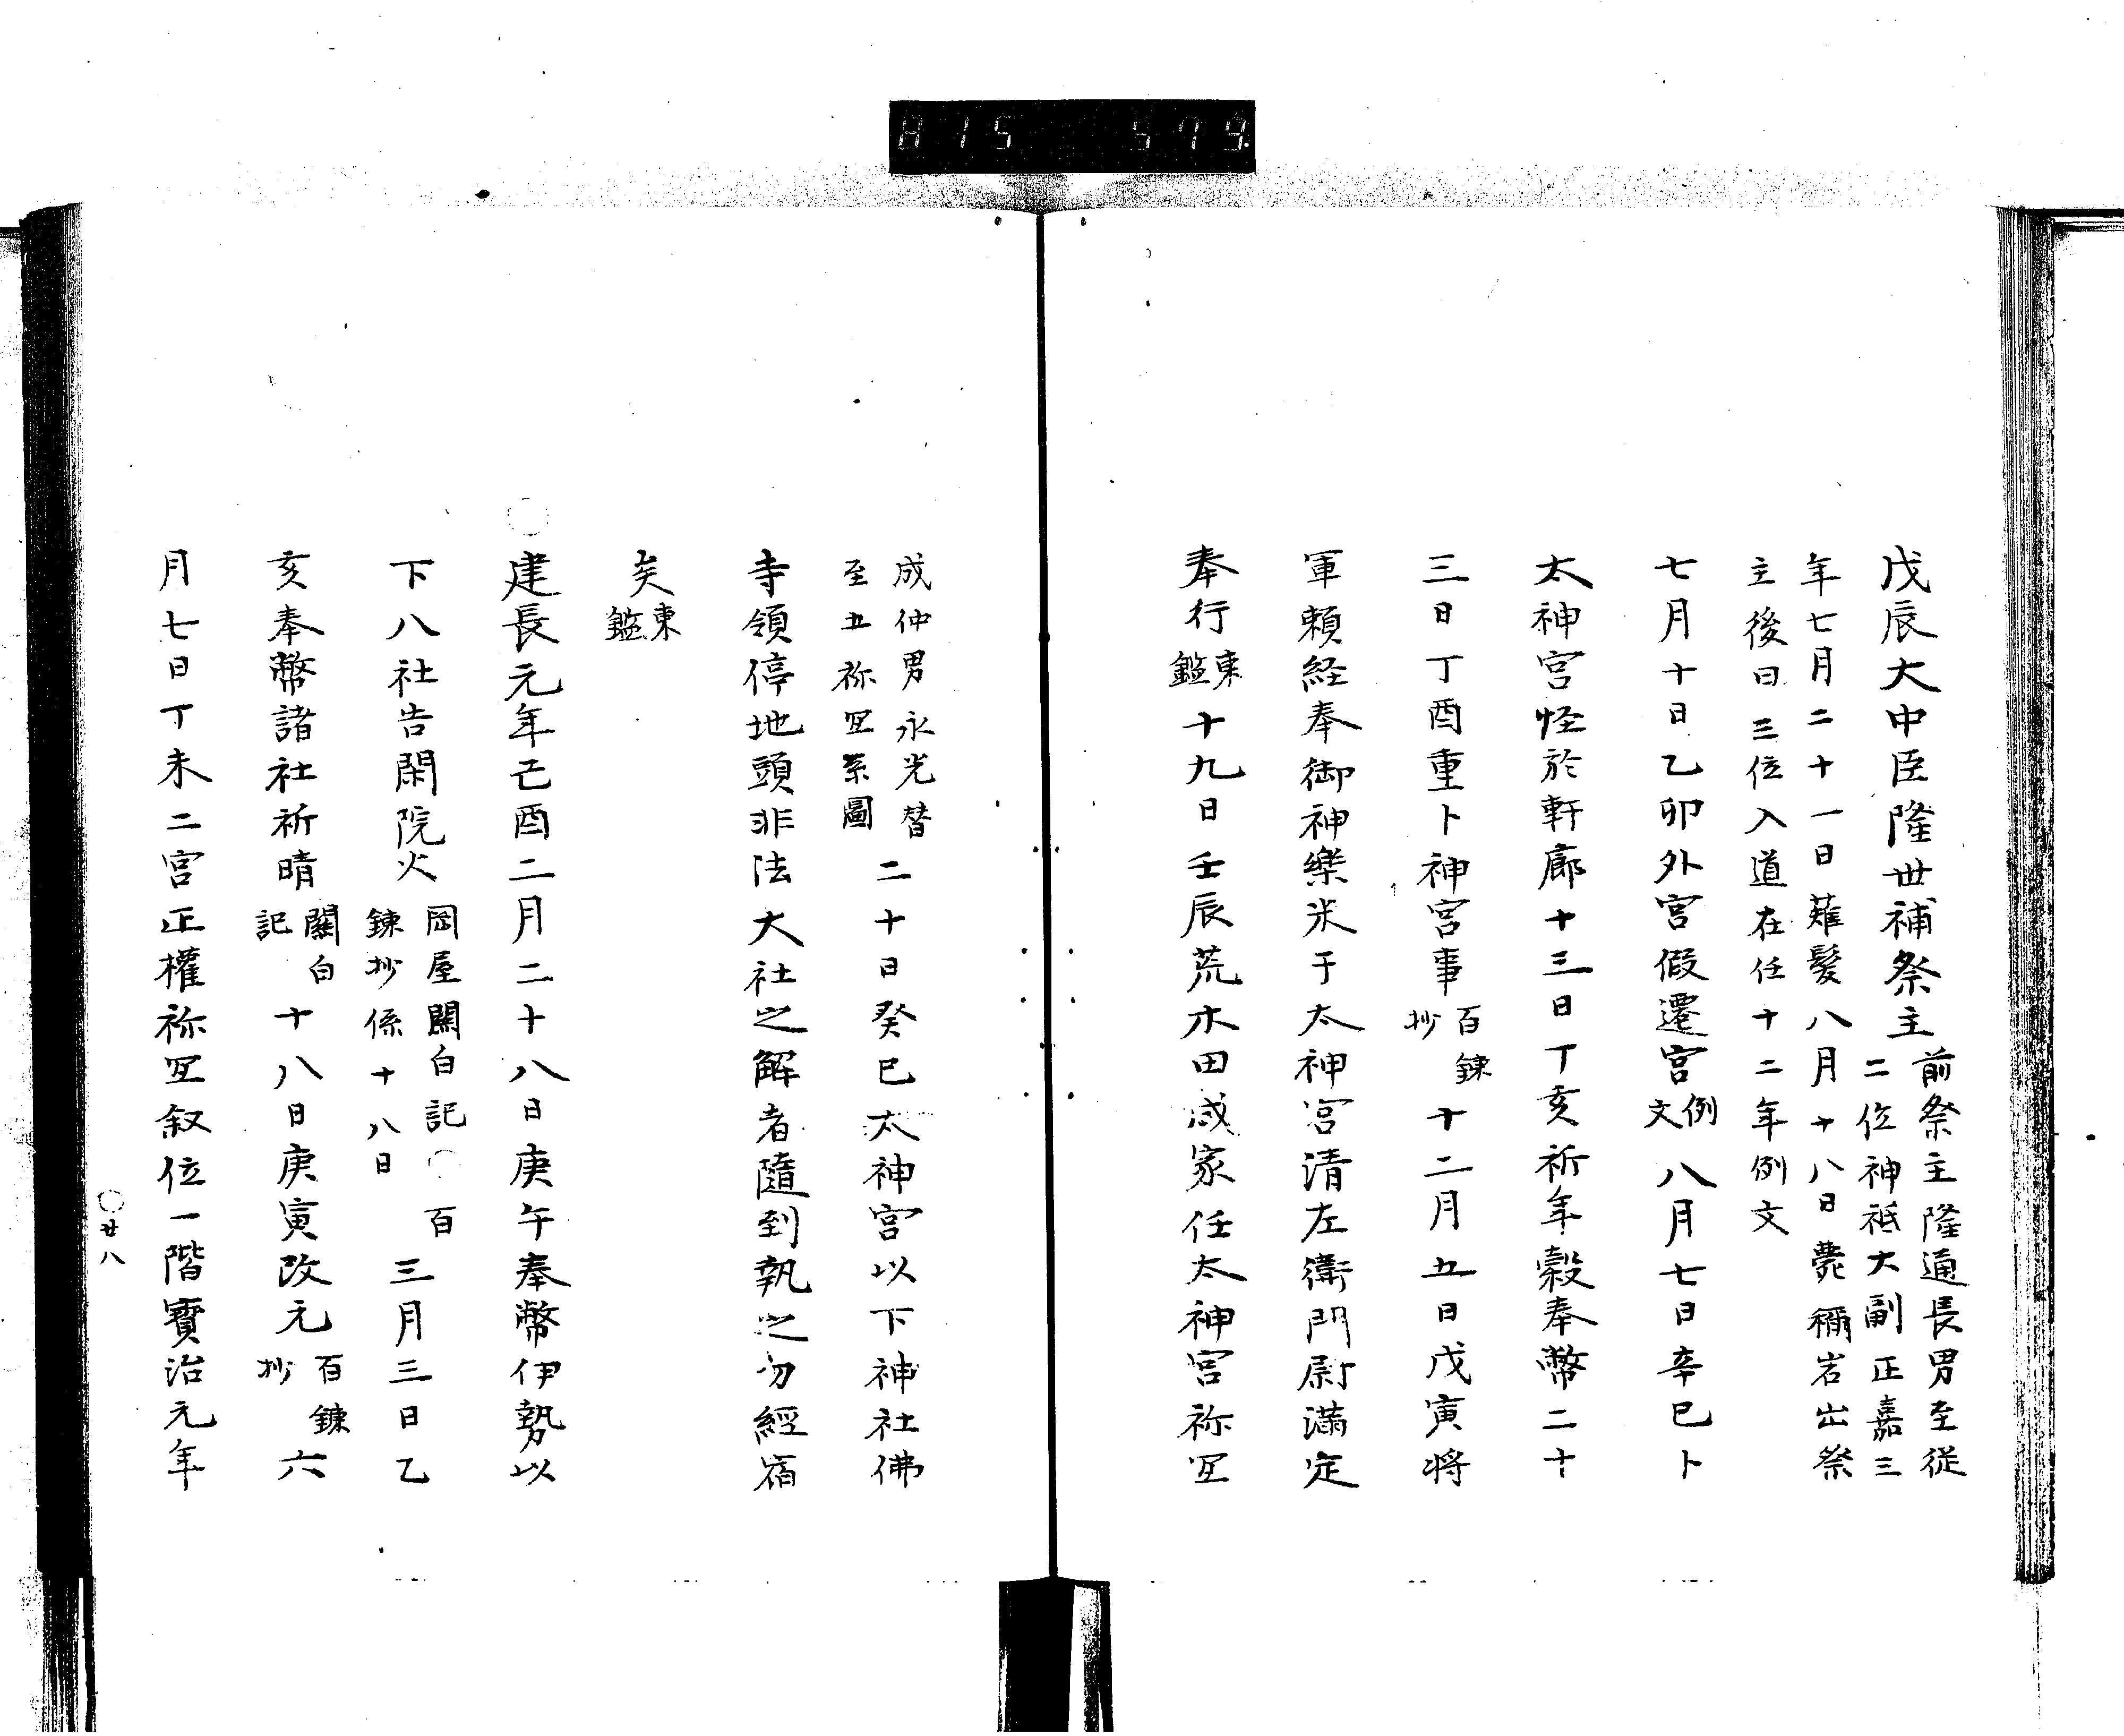 815 579.
戊辰大中臣隆世補祭主前祭主隆通長男至従
二位神祇大副正嘉三
年七月二十一日薙髪八月十八日薨稱岩出祭
主後曰三位入道在任十二年例文
七月十日乙卯外宮假遷宮例文八月七日辛巳卜
太神宮怪於軒廊十三日丁亥祈年穀奉幣二十
三日丁酉重卜神宮事百鍊抄十二月五日戊寅将
軍頼経奉御神樂米于太神宮清左衛門尉滿定
奉行東鑑十九日壬辰荒木田成家任太神宮祢宜
成仲男永光替
至五祢宜系圖二十日癸巳太神宮以下神社佛
寺領停地頭非法大社之解者隨到執之勿經宿
矣東鑑
○建長元年己酉二月二十八日庚午奉幣伊勢以
下八社告閑院火岡屋關白記○百鍊抄係十八日三月三日乙
亥奉幣諸社祈晴關白記十八日庚寅改元百鍊抄六
月七日丁未二宮正權祢宜叙位一階寶治元年
○廿八